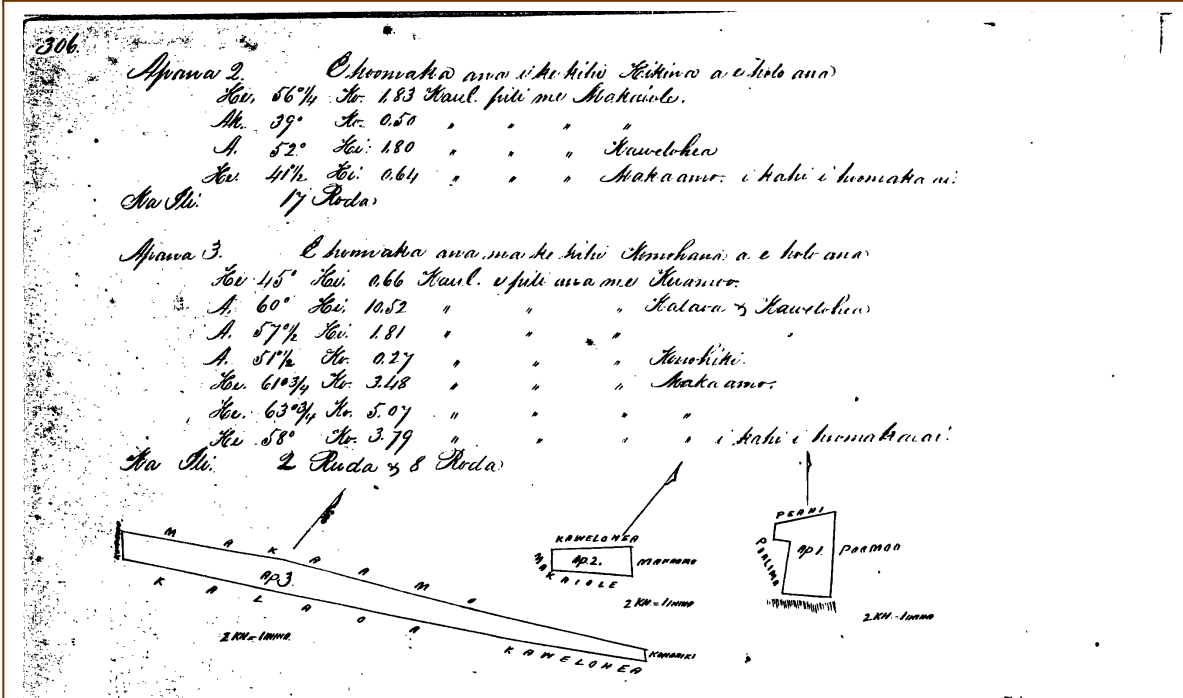 306.
Apana 2. E hoomaka ana i ke kihi Hikina a e holo ana
He. 56°1/4 Ko. 1.83 Kaul. pili me Makaiole.
Ak. 39° Ko. 0.50 " " " "
A. 52° Hi. 1.80 " " " Kawelohea
He. 41°1/2 Hi. 0.64 " " " Makaamo. i kahi i hoomaka ai.
Ka Ili. 17 Roda
Apana 3. E hoomaka ana ma ke kihi Komohana a e holo ana
He 45° Hi. 0.66 Kaul. e pili ana me
A. 60° Hi. 10.52 " " " Kalaoa & Kawelohea
A. 57°1/2 Hi. 1.81 " " " "
A. 51°1/2 Ko. 0.27 " " " Konohiki.
He. 61°3/4 Ko. 3.48 " " " Makaamo.
He. 63°3/4 Ko. 5.07 " " " "
He 58° Ko. 3.79 " " " " i kahi i hoomaka ai.
Ka Ili. 2 Ruda & 8 Roda
MAKAAMO
AP.3.
KALAOA
KAWELOHEA
KONOHIKI
2 KH = 1 INIHA
KAWELOHEA
AP.2.
MAKAAMO
MAKAIOLE
2 KH = 1 INIHA
PEAHI
POALIMA
AP.1.
2 KH = 1 INIHA